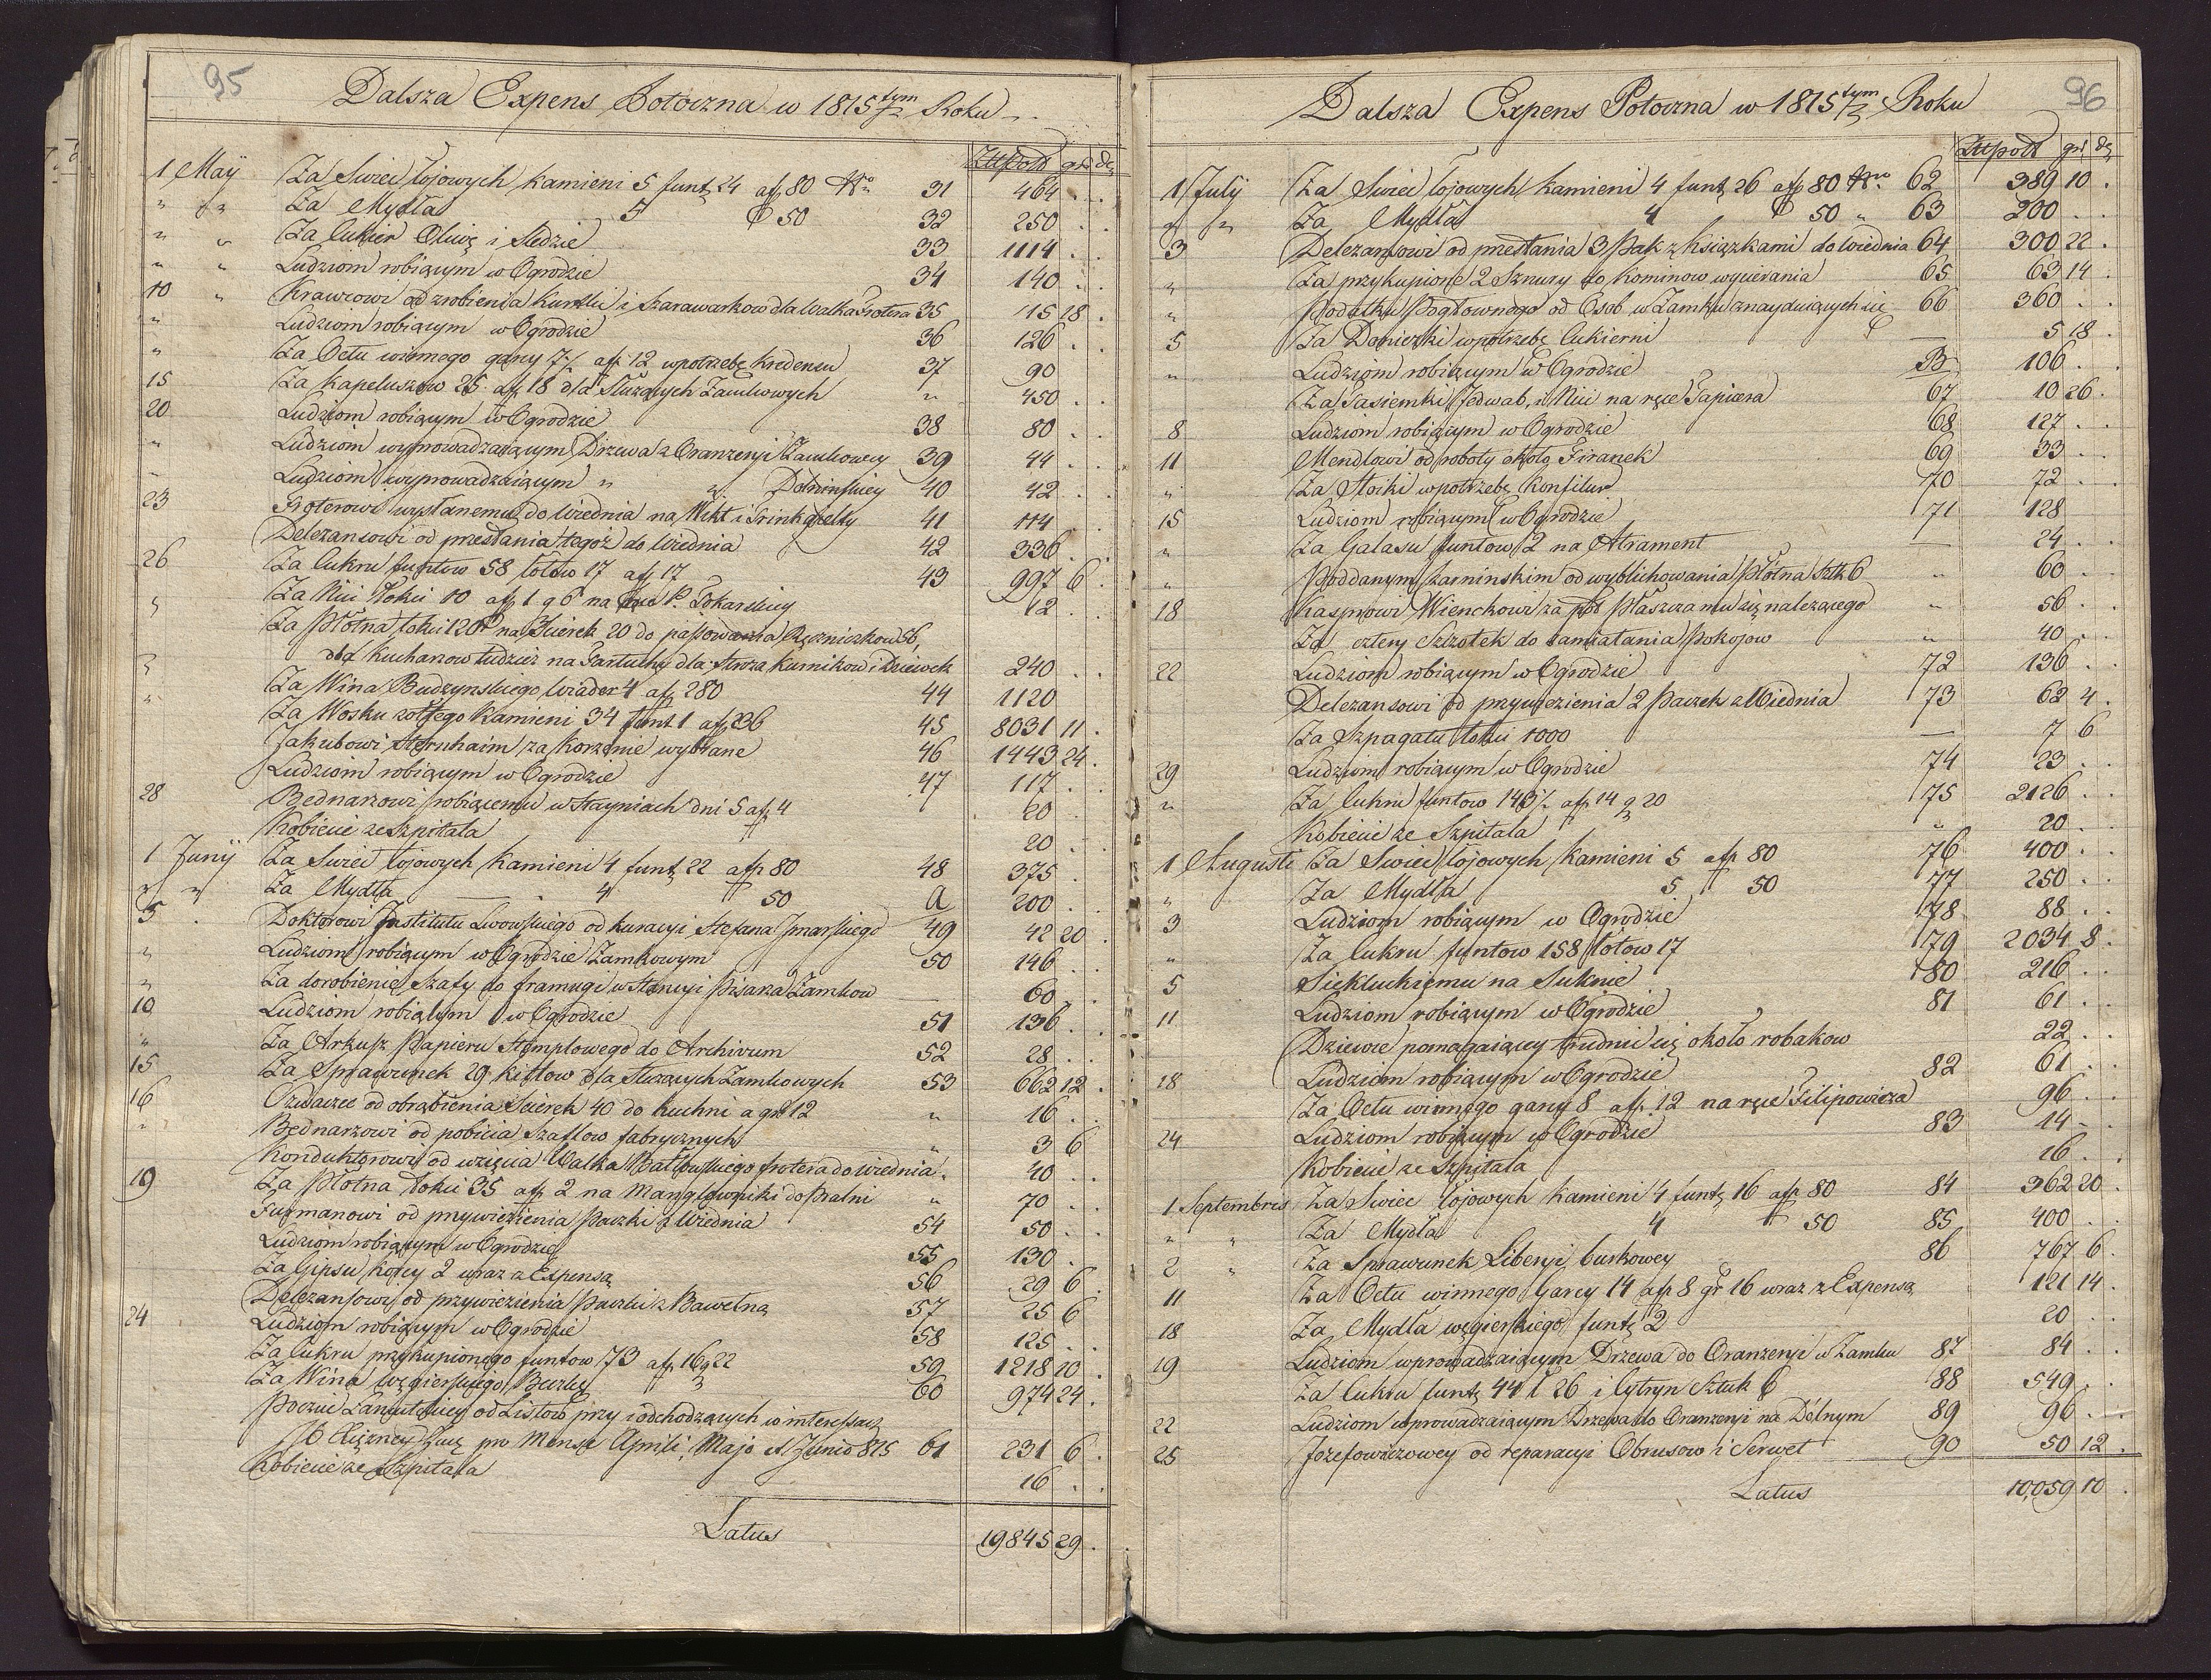 95
Dalsza Expens Potoczna w 1815tym Roku
Złłpols gr. d.
1 May Za Swiec łojowych kamieni 5 funt. 24 afl. 80 Nro 31 464
" " Za Mydła 5 50 32 250
" " Za Cukier Oliwę i Sledzie 33 1114
" " Ludziom robiącym w Ogrodzie 34 140
10 " Krawcowi od zrobienia Kurtki i Szarawarkow dla Walka Frotera 35 115 18
" Ludziom robiącym w Ogrodzie 36 126
" Za Octu winnego garcy 7½ afl. 12 wpotrzebę Kredensu 37 90
15 Za Kapeluszow 25 afl. 18 dla Służących Zamkowych " 450
20 Ludziom robiącym w Ogrodzie 38 80
" Ludziom wyprowadzaiącym Drzewa z Oranżeryi Zamkowey 39 44
" Ludziom wyprowadzaiącym " " Dolninskiey 40 42
23 Froterowi wysłanemu do Wiednia na Wikt i Trinkgelty 41 114
Delezansowi od przesłania tegoż do Wiednia 42 336
26 Za Cukru funtow 58 łotow 17 afl. 17 43 997 6
" Za Nici Łokci 10 afl. 1 g 6 na ręce P. Tokarskiey 12
Za Płótna łokci 120 na Scierek 20 do pasowania Ręczniczkow 56,
" dla Kucharzow tudzież na Fartuchy dla Stroza Kurnikow i Dziewek 240
" Za Wina Budzynskiego Wiader 4 afl. 280 44 1120
Za Wosku żołtego Kamieni 34 funt 1 afl. 236 45 8031 11
Jakubowi Sternhaim za Korzenie wybrane 46 1443 24
Ludziom robiącym w Ogrodzie 47 117
28 Bednarzowi robiącemu w Stayniach dni 5 afl. 4 20
Kobiecie ze Szpitala 20
1 Junÿ Za Swiec łojowych Kamieni 4 funt. 22 afl. 80 48 375
" " Za Mydła 4 50 A 200
5 Doktorowi Institutu Lwowskiego od kuracyi Stefana 49 42 20
" Ludziom robiącym w Ogrodzie Zamkowym 50 146
" Za dorobienie Szafy do framugi w Stancyi Pisarza Zamkow 60
10 Ludziom robiącym w Ogrodzie 51 136
" Za Arkusz Papieru Stęmplowego do Archivum 52 28
15 Za Sprawunek 29 kitlow dla Służących Zamkowych 53 662 12
16 Szwaczce od obrąbienia Scierek 40 do Kuchni a gr 12 " 16
" Bednarzowi od pobicia Szaflow fabrycznych " 3 6
Konduktorowi od wzięcia Walka frotera do Wiednia 40
19 Za Płotna Łokci 35 afl. 2 na Manglowniki do Pralni " 70
Furmanowi od przywiezienia Paczki z Wiednia 54 50
Ludziom robiącym w Ogrodzie 55 130
Za Gipsu korcy 2 wraz z Expensą 56 29 6
Delezansowi od przywiezienia Paczki z Bawełną 57 25 6
24 Ludziom robiącym w Ogrodzie 58 125
Za Cukru przykupionego funtow 73 afl. 16 g 22 59 1218 10
Za Wina Węgierskiego Beczkę 60 974 24
Poczcie Łancutskiey od Listow przy i odchodzących w interessach
JO Xiężney pro Mense Aprili, Majo et Junio 815 61 231 6
Kobiecie ze Szpitala 16
Latus 19845 29
96
Dalsza Expens Potoczna w 1815tym Roku
Złłpols gr. d.
1 Julÿ Za Swiec łojowych Kamieni 4 funt. 26 afl. 80 Nro 62 389 10
" " Za Mydła 4 50 " 63 200
3 Delezansowi od przesłania 3 Pak z Książkami do Wiednia 64 300 22
" Za przykupione 2 Sznury do Kominow wycierania 65 63 14
" Podatku Pogłownego od Osob w Zamku znayduiących się 66 360
5 Za Doniczki wpotrzebę Cukierni — 5 18
" Ludziom robiącym w Ogrodzie B 106
Za Tasiemki, Jedwab, i Nici na ręce Tapicera 67 10 26
8 Ludziom robiącym w Ogrodzie 68 127
11 Mendlowi od roboty około Firanek 69 33
" Za Słoiki wpotrzebę Konfitur 70 72
15 Ludziom robiącym w Ogrodzie 71 128
" Za Galasu funtow 2 na Atrament — 24
" Poddanym Zarninskim od wyblichowania Płótna Sztk 6 " 60
18 Kasprowi Wienchowi za pół Płaszcza mu się nalezącego " 56
Za cztery Szczotek do zamiatania Pokojow " 40
22 Ludziom robiącym w Ogrodzie 72 136
Delezansowi od przywiezienia 2 Paczek z Wiednia 73 62 4
Za Szpagatu łokci 1000 — 7 6
29 Ludziom robiącym w Ogrodzie 74 23
" Za Cukru funtow 145 afl. 14 g 20 75 2126
Kobiecie ze Szpitala " 20
1 Augusti Za Swiec łojowych Kamieni 5 afl. 80 76 400
" Za Mydła 5 50 77 250
3 Ludziom robiącym w Ogrodzie 78 88
" Za Cukru funtow 158 łotow 17 79 2034 8
5 Siekluckiemu na Suknie 80 216
11 Ludziom robiącym w Ogrodzie 81 61
Dziewce pomagaiącey trudnić się około robakow 22
18 Ludziom robiącym w Ogrodzie 82 61
Za Octu winnego garcy 8 afl. 12 na ręce Filipowicza 96
24 Ludziom robiącym w Ogrodzie 83 14
Kobiecie ze Szpitala 16
1 Septembris Za Swiec łojowych Kamieni 4 funt. 16 afl. 80 84 362 20
" " Za Mydła 4 50 85 400
2 " Za Sprawunek Liberyi burkowey 86 767 6
11 Za Octu winnego Garcy 14 afl. 8 gr 16 wraz z Expensą 121 14
18 Za Mydła węgierskiego funt. 2 20
19 Ludziom wprowadzaiącym Drzewa do Oranżeryi w Zamku 87 84
Za Cukru funt. 44 ł 26 i Cytryn Sztuk 6 88 549
22 Ludziom wprowadzaiącym Drzewa do Oranżeryi na Dólnym 89 96
25 Jozefowiczowey od reparacyi Obrusow i Serwet 90 50 12
Latus 10,059 10